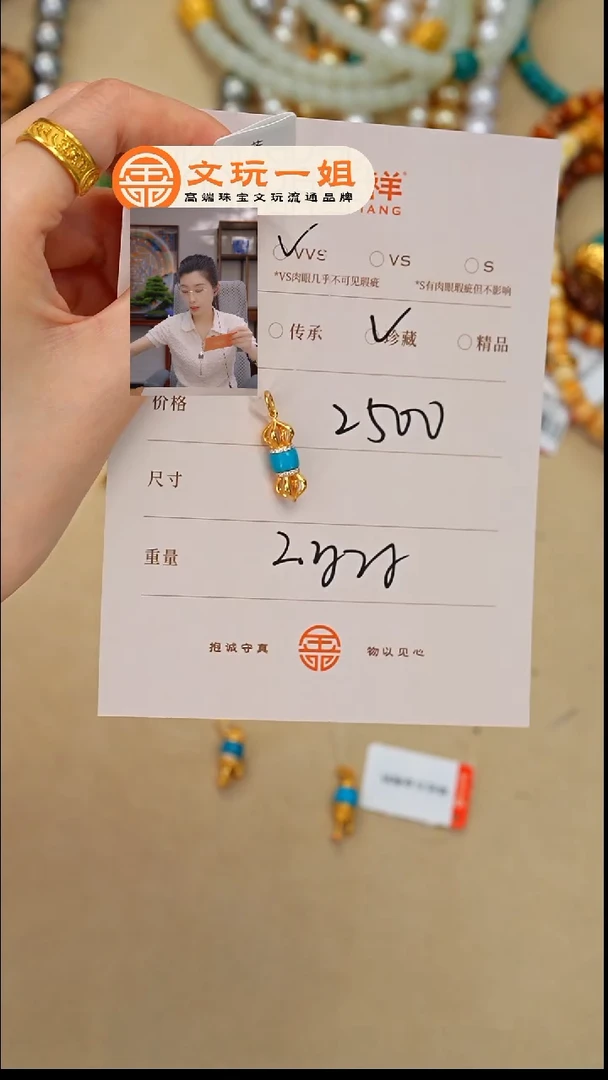 文玩一姐
高端珠宝文玩流通品牌
祥
IANG
VVS VS S
*VS肉眼几乎不可见瑕疵 *S有肉眼瑕疵但不影响
传承 珍藏 精品
价格 2500
尺寸
重量
抱诚守真 物以见心